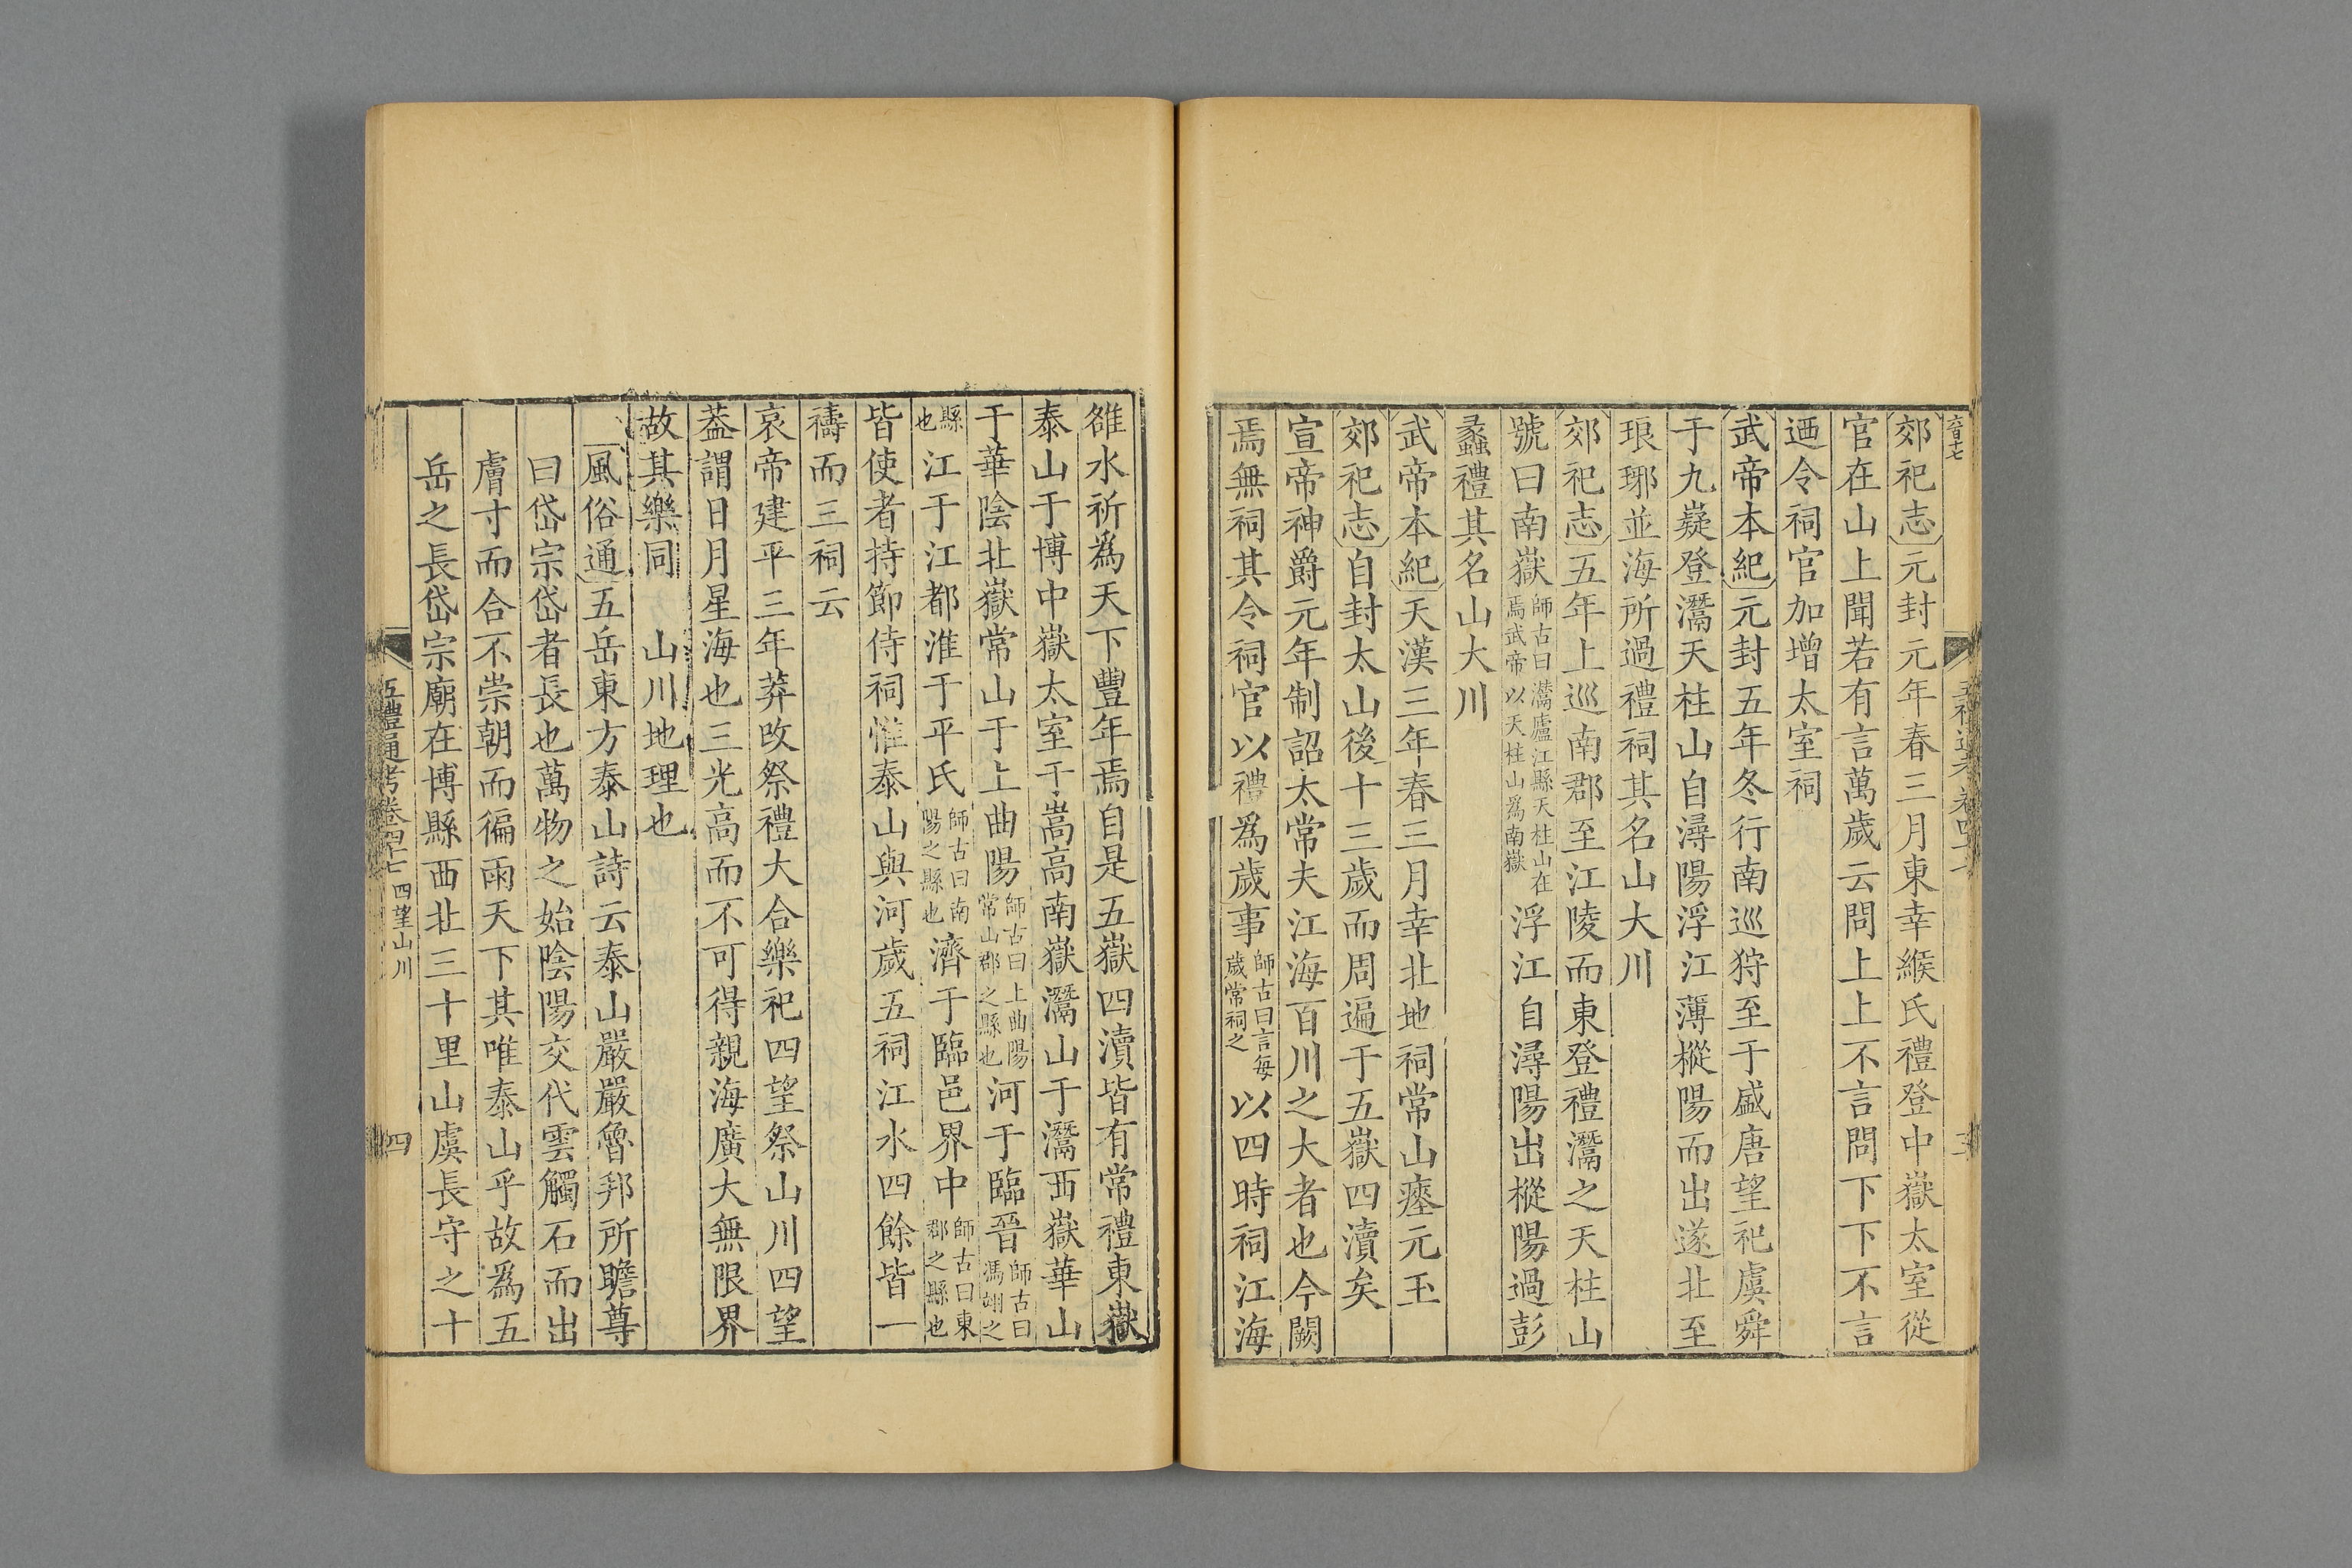 郊祀志元封元年春三月東幸緱氏禮登中嶽太室從
官在山上聞若有言萬歲云問上上不言問下下不言
迺令祠官加增太室祠
武帝本紀元封五年冬行南巡狩至于盛唐望祀虞舜
于九嶷登灊天柱山自潯陽浮江薄樅陽而出遂北至
琅琊並海所過禮祠其名山大川
郊祀志五年上巡南郡至江陵而東登禮灊之天柱山
號曰南嶽師古曰灊廬江縣天柱山在焉武帝以天柱山爲南嶽浮江自潯陽出樅陽過彭
蠡禮其名山大川
武帝本紀天漢三年春三月幸北地祠常山瘞元玉
郊祀志自封太山後十三歲而周遍于五嶽四瀆矣
宣帝神爵元年制詔太常夫江海百川之大者也今闕
焉無祠其令祠官以禮爲歲事師古曰言每歲常祠之以四時祠江海
雒水祈爲天下豐年焉自是五嶽四瀆皆有常禮東嶽
泰山于博中嶽太室于嵩高南嶽灊山于灊西嶽華山
于華陰北嶽常山于上曲陽師古曰上曲陽常山郡之縣也河于臨晉師古曰馮翊之
縣也江于江都淮于平氏師古曰南陽之縣也濟于臨邑界中師古曰東郡之縣也
皆使者持節侍祠惟泰山與河歲五祠江水四餘皆一
禱而三祠云
哀帝建平三年莽改祭禮大合樂祀四望祭山川四望
葢謂日月星海也三光高而不可得親海廣大無限界
故其樂同 山川地理也
風俗通五岳東方泰山詩云泰山嚴嚴魯邦所瞻尊
曰岱宗岱者長也萬物之始陰陽交代雲觸石而出
膚寸而合不崇朝而徧雨天下其唯泰山乎故爲五
岳之長岱宗廟在博縣西北三十里山虞長守之十
五禮通考卷四十七 四望山川 四